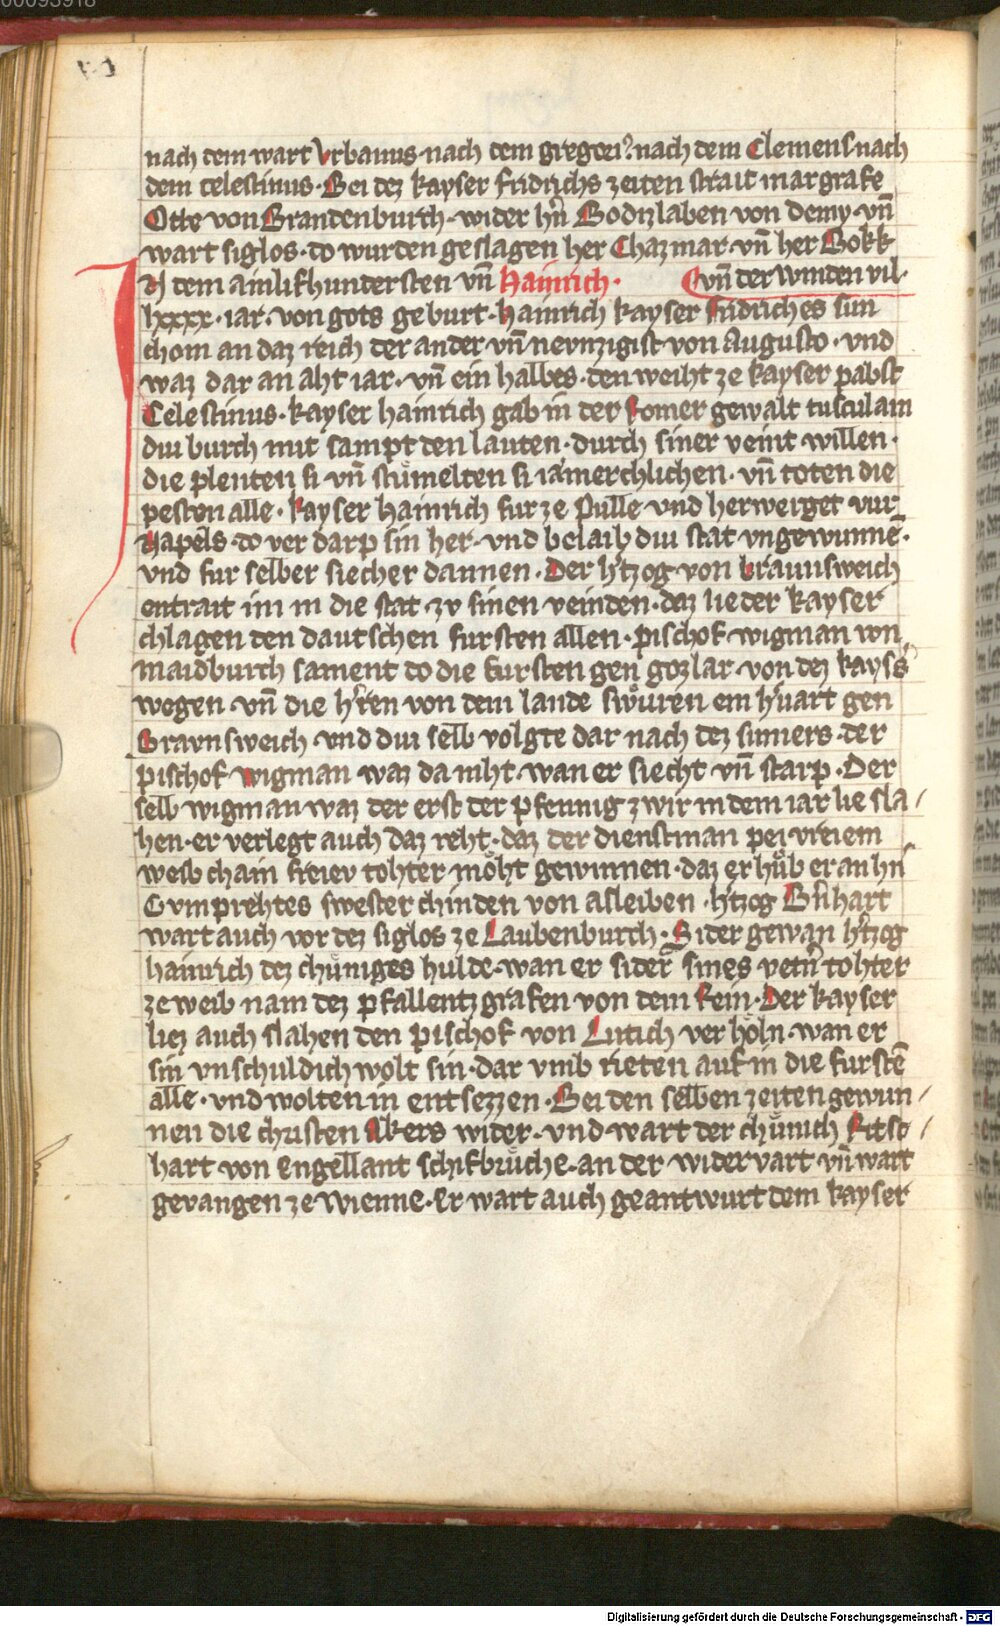 00093918
nach dem wart Vrbanus · nach dem gregori᷒ · nach dem Clemens · nach
dem celestinus · Bei dez kayser fridrichs zeiten strait margrafe
Otte von Brandenburch · wider hn̄ Bodizlaben von demy · vn̄
wart siglos · do wurden geslagen her Chazmar · vn̄ her Bokk
IN dem ainlifhundersten vn̄ Hainrich · vn̄ der winden vil ·
lxxxx · iar · von gots geburt · hainrich kayser fridriches sun
chom an daz reich der ander vn̄ nevnzigist von augusto · vnd
waz dar an aht iar · vn̄ ein halbes · den weiht ze kayser pabst
Celestinus · kayser hainrich gab in der romer gewalt tusculam
diu burch mit sampt den lauten · durch siner veint willen ·
die plenten si vn̄ stůmelten si iamerchlichen · vn̄ toten die
pesten alle · kayser hainrich fur ze Pulle vnd herwerget vur
Napels · do ver darp sin her · vnd belaib diu stat vngewunnē ·
vnd fur selber siecher dannen · Der h'tzog von braunsweich
entrait im in die stat · zv sinen veinden · daz lie der kayser
chlagen den dautschen fursten allen · pischof wigman von
maidburch sament do die fursten gen gozlar · von dez kaysers
wegen vn̄ die h'ren von dem lande swůren ein h'uart gen
Bravnsweich vnd diu selb volgte dar nach dez sumers · der
pischof wigman waz da niht · wan er siecht vn̄ starp · Der
selb wigman waz der erst der pfennig zwir in dem iar lie sla/
hen · er verlegt auch daz reht · daz der dienstman pei vreiem
weib chain freiev tohter mőht gewinnen · daz er hůb er an hn̄
Gvmprehtes swester chinden von asleiben · h'tzog Bn̄hart
wart auch vor dez siglos ze Laubenburch · Sider gewan h'tzog
hainrich dez chůniges hulde · wan er sider sines vetn̄ tohter
ze weib nam dez pfallentzgrafen von dem Rein · Der kayser
liez auch slahen den pischof von Lutich verholn · wan er
sin vnschuldich wolt sin · dar vmb rieten auf in die furstē
alle · vnd wolten in entsezzen · Bei den selben zeiten gewun/
nen die christen Akers wider · vnd wart der chůnich Ritsc/
hart von engellant schifbrůche · an der widervart vn̄ wart
gevangen ze wienne · Er wart auch geantwurt dem kayser
Digitalisierung gefördert durch die Deutsche Forschungsgemeinschaft - DFG